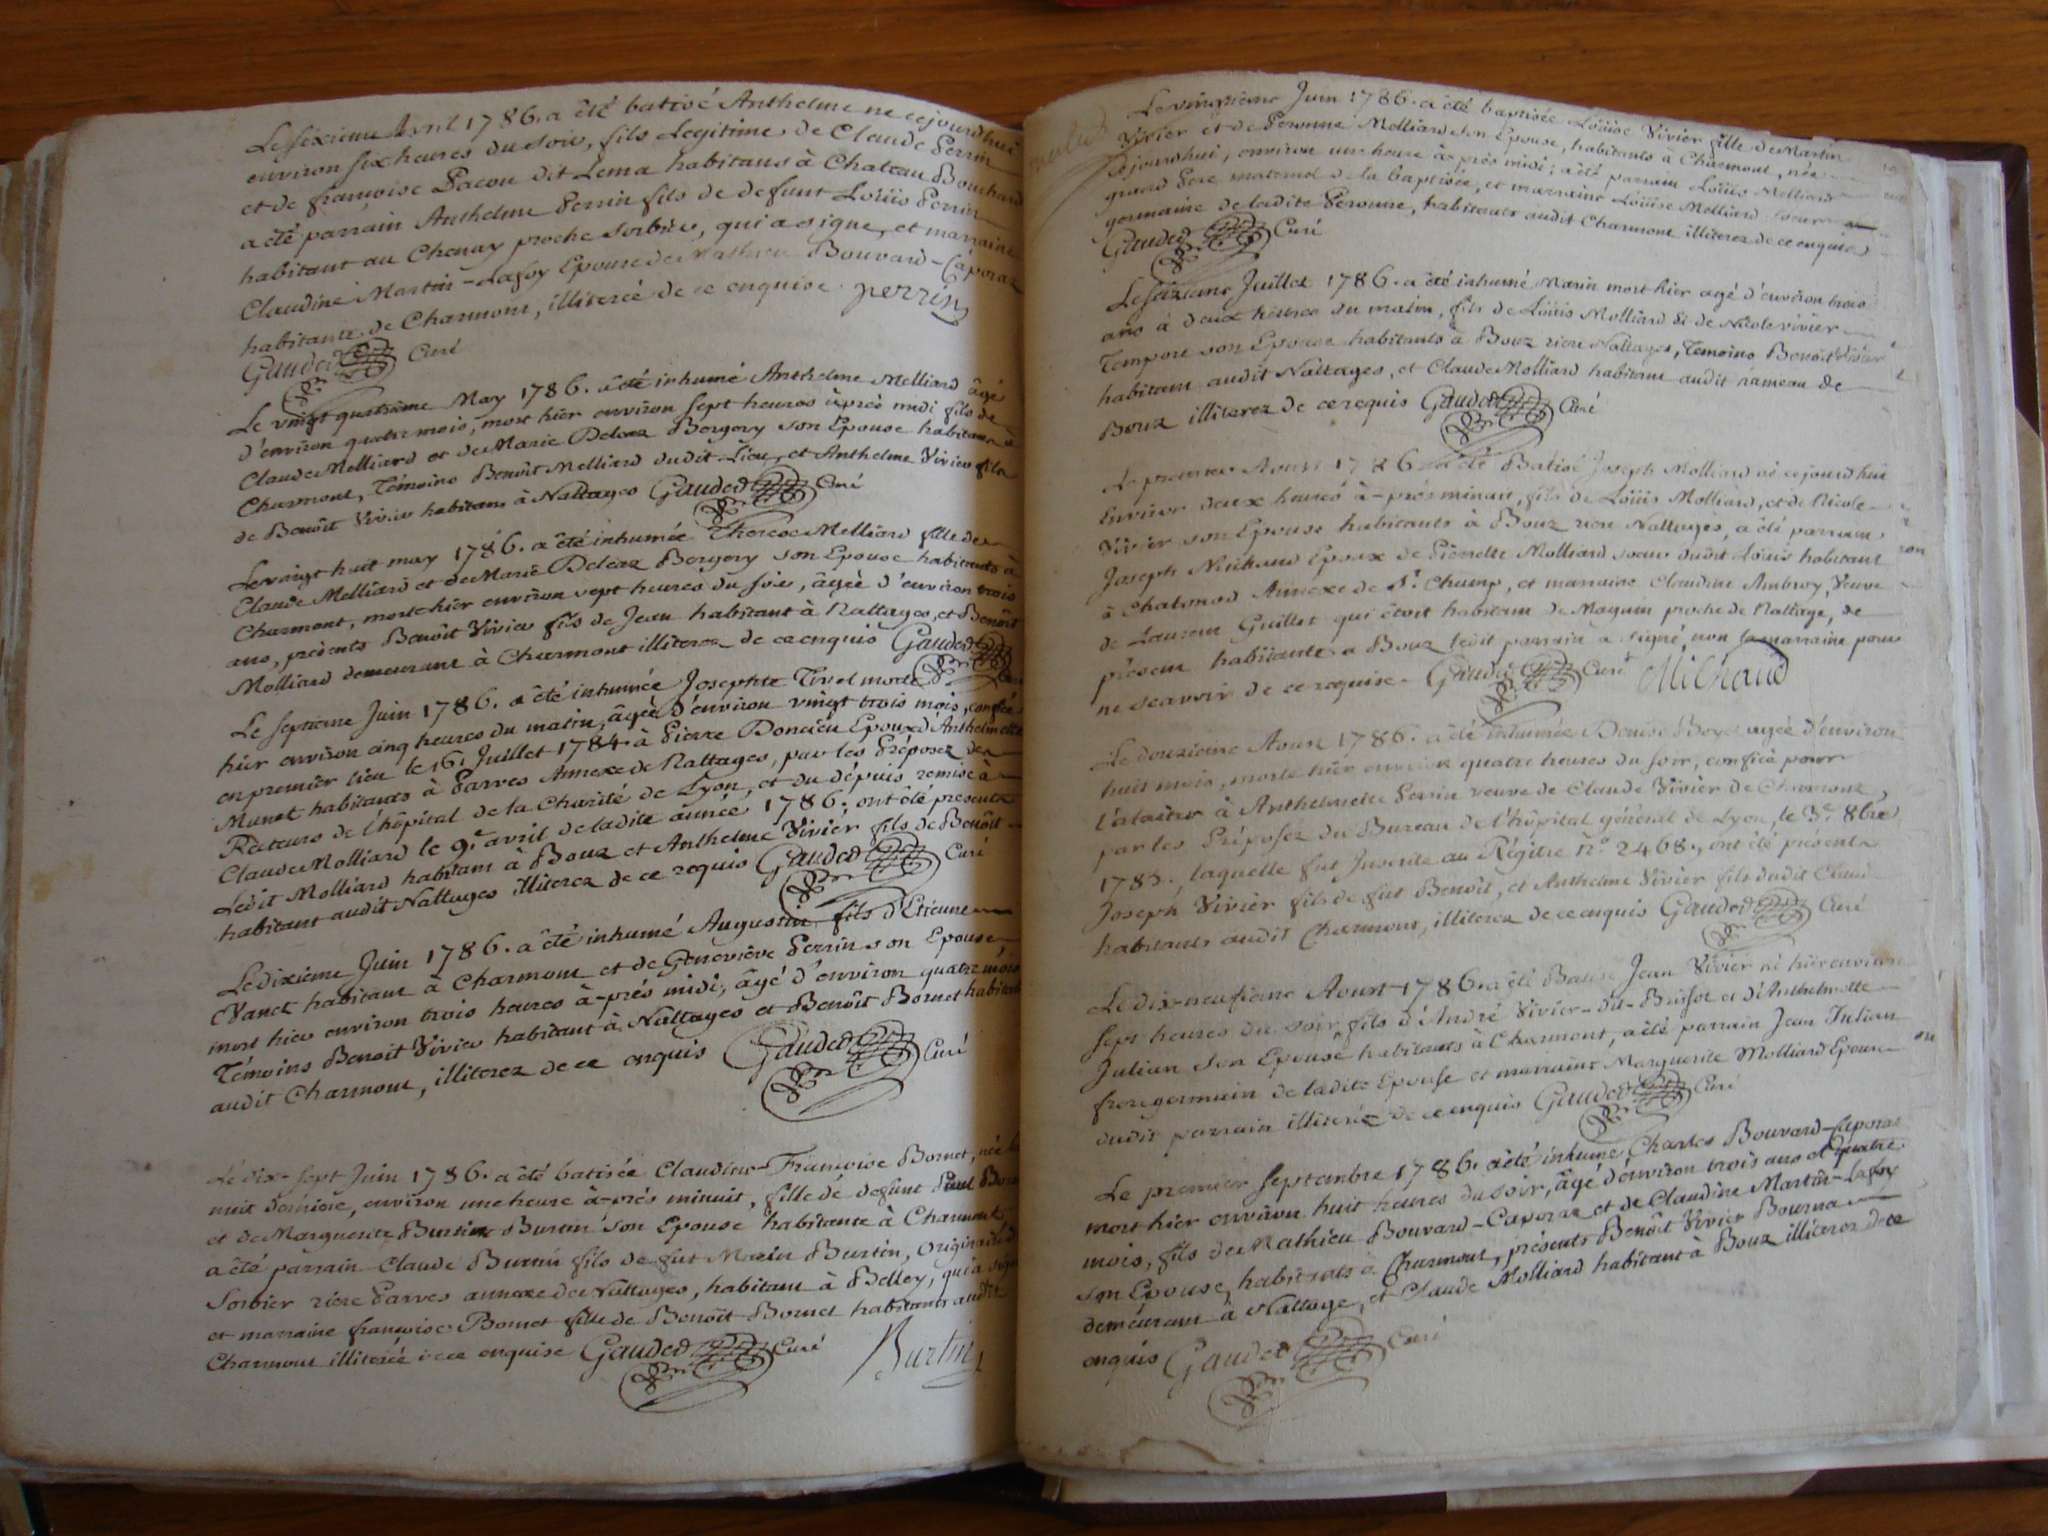 Le sixieme Avril 1786. a été batisé Anthelme né cejourd'hui
environ six heures du soir, fils Legitime de Claude Perrin
et de françoise Pacou dit Lema habitans à Chateau Bouchard
a été parrain Anthelme Perrin fils de defunt Loüis Perrin
habitant au Chenay proche Sorbier, qui a signé, et marraine
Claudine Martin-Lafoy Epouse de Mathieu Bouvard-Caporaz
habitante de Charmont, illiterée de ce enquise. perrin
Gauded Curé
Le vingt quatrième May 1786. a été inhumé Anthelme Molliard âgé
d'environ quatre mois, mort hier environ sept heures après midi fils de
Claude Molliard et de Marie Deleaz Bergery son Epouse habitans à
Charmont, Témoins Benoît Molliard dudit Lieu, et Anthelme Vivier fils
de Benoît Vivier habitans à Nattages Gauded Curé
Le vingt huit may 1786. a été inhumée Therese Molliard fille de
Claude Molliard et de Marie Deleaz Bergery son Epouse habitants à
Charmont, morte hier environ sept heures du soir, âgée d'environ trois
ans, présents Benoît Vivier fils de Jean habitant à Nattages, et Benoît
Molliard demeurant à Charmont illiterez de ce enquis Gauded
Le septieme Juin 1786. a été inhumée Josephte Tivel morte
hier environ cinq heures du matin, âgée d'environ vingt trois mois, confiée
en premier lieu le 16. Juillet 1784. à Pierre Doncieu Epoux d'Anthelmette
Munet habitants à Parves Annexe de Nattages, par les Préposez des
Recteurs de l'hôpital de la Charité de Lyon, et du dépuis remise à
Claude Molliard le 9e. avril de ladite année 1786. ont été présents
Ledit Molliard habitant à Bouz et Anthelme Vivier fils de Benoît
habitant audit Nattages illiterez de ce requis Gauded Curé
Le dixieme Juin 1786. a été inhumé Augustin fils d'Etienne
Vanet habitant à Charmont et de Geneviève Perrin son Epouse,
mort hier environ trois heures à-près midi, âgé d'environ quatre mois
Témoins Benoit Vivier habitant à Nattages et Benoît Bornet habitant
audit Charmont, illiterez de ce enquis Gauded Curé
Le dix-sept Juin 1786. a été batisée Claudine-Françoise Bornet, née la
nuit dernière, environ une heure à-près minuit, fille de defunt Paul Bornet
et de Marguerite Burtin Burtin son Epouse habitante à Charmont
a été parrain Claude Burtin fils de fut Marin Burtin, originaire de
Sorbier riere Parves annexe de Nattages, habitant à Belley, qui a signé
et marraine françoise Bornet fille de Benoît Bornet habitants audit
Charmont illiterée de ce enquise Gauded Curé Burtin
Le vingtieme Juin 1786. a été baptisée Loüise Vivier fille de Martin
Vivier et de Peronne Molliard son Epouse, habitants à Charmont, née
cejourdhui, environ une heure à-près midi; a été parrain Loüis Molliard
grand Pere maternel de la baptisée, et marraine Loüise Molliard soeur
germaine de ladite Peronne, habitants audit Charmont illiterez de ce enquis
Gauded Curé
Le seizieme Juillet 1786. a été inhumé Marin mort hier agé d'environ trois
ans à deux heures du matin, fils de Loüis Molliard et de Nicole vivier
Tempore son Epouse habitants à Bouz riere Nattages, Temoins Benoit Vivier
habitant audit Nattages, et Claude Molliard habitant audit hameau de
Bouz illiterez de ce requis Gauded Curé
Le premier Aoust 1786 a été Batisé Joseph Molliard né cejourdhui
Environ deux heures à-près minuit, fils de Loüis Molliard, et de Nicole
Vivier son Epouse habitants à Bouz riere Nattages, a été parrain
Joseph Michaud Epoux de Pierrette Molliard soeur dudit Louis habitant
à Chatonod Annexe de St. Champ, et marraine Claudine Ambroy, Veuve
de Laurent Guillet qui étoit habitant de Magnin proche de Nattage, de
présent habitante à Bouz ledit parrain a signé, non la marraine pour
ne scavoir de ce requise. Gauded Curé Michaud
Le douzieme Aoust 1786. a été inhumée Denise Boye agée d'environ
huit mois, morte hier environ quatre heures du soir, confiée pour
l'alaiter à Anthelmette Perrin veuve de Claude Vivier de Charmont,
par les Préposez du Bureau de l'hôpital général de Lyon, le 3e. 8bre
1785., laquelle fut Inscrite au Régitre no. 2468., ont été présents
Joseph Vivier fils de fut Benoît, et Anthelme Vivier fils dudit Claude
habitants audit Charmont, illiterez de ce enquis Gauded Curé
Le dix-neufieme Aoust 1786. a été Batisé Jean Vivier né hier environ
sept heures du soir, fils d'André Vivier-dit-Buisson et d'Anthelmette
Julian son Epouse habitants à Charmont, a été parrain Jean Julian
frere germain de ladite Epouse et marraine Marguerite Molliard Epouse
dudit parrain illiterez de ce enquis Gauded Curé
Le premier Septembre 1786. a été inhumé Charles Bouvard-Caporaz
mort hier environ huit heures du soir, âgé d'environ trois ans et quatre
mois, fils de Mathieu Bouvard-Caporaz et de Claudine Martin-Lafoy
son Epouse, habitants à Charmont, présents Benoît Vivier Bourna
demeurant à Nattage, et Claude Molliard habitant à Bouz illiterez de ce
enquis Gauded Curé